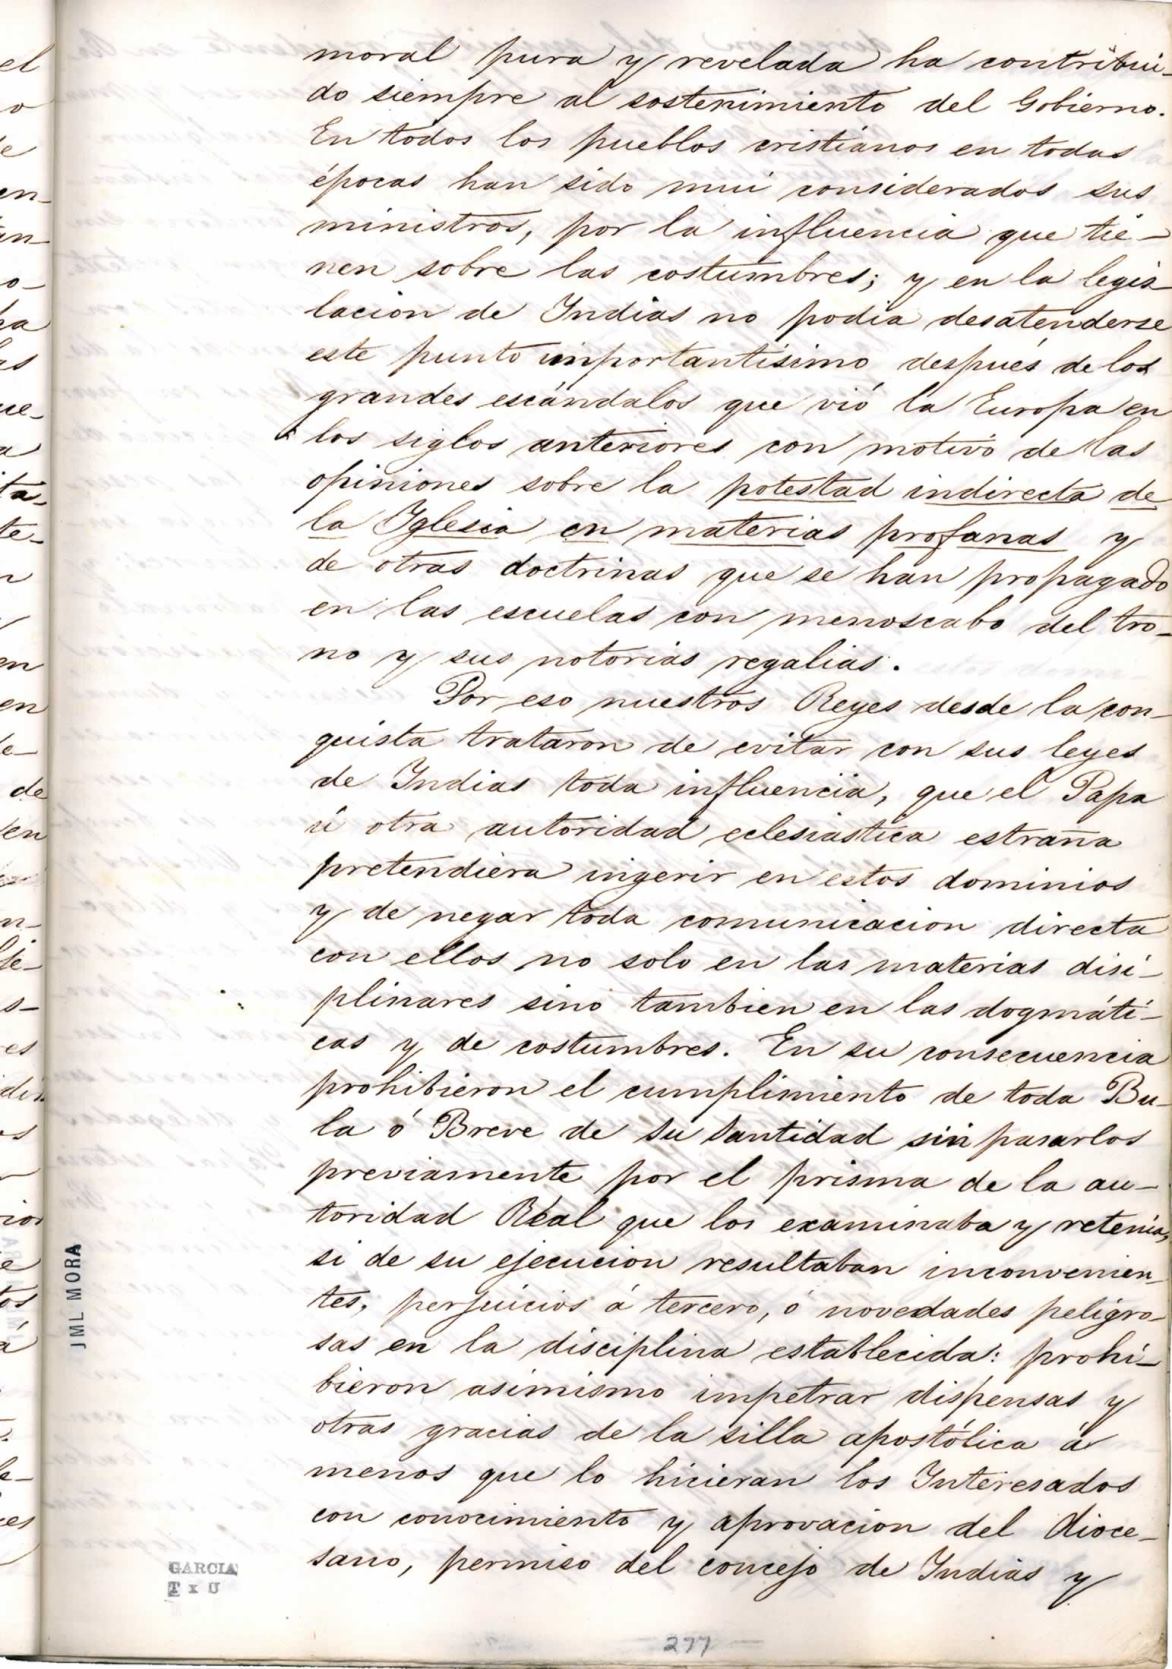 moral pura y revelada ha contribui-
do siempre al sostenimiento del Gobierno.
En todos los pueblos cristianos en todas
épocas han sido mui considerados sus
ministros, por la influencia que tie-
nen sobre las costumbres; y en la legis-
lacion de Indias no podia desatenderse
este punto importantisimo después de los
grandes escándalos que vió la Europa en
los siglos anteriores con motivo de las
opiniones sobre la potestad indirecta de
la Iglesia en materias profanas y
de otras doctrinas que se han propagado
en las escuelas con menoscabo del tro-
no y sus notorias regalias.
Por eso nuestros Reyes desde la con-
quista trataron de evitar con sus leyes
de Indias toda influencia, que el Papa
ú otra autoridad eclesiastica estraña
pretendiera ingerir en estos dominios
y de negar toda comunicacion directa
con ellos no solo en las materias disi-
plinares sino tambien en las dogmáti-
cas y de costumbres. En su consecuencia
prohibieron el cumplimiento de toda Bu-
la ó Breve de su Santidad sin pasarlos
previamente por el prisma de la au-
toridad Real que los examinaba y retenia,
si de su ejecucion resultaban inconvenien-
tes, perjuicios á tercero, ó novedades peligro-
sas en la disciplina establecida: prohi-
bieron asimismo impetrar dispensas y
otras gracias de la silla apostólica á
menos que lo hicieran los Interesados
con conocimiento y aprovacion del dioce-
sano, permiso del concejo de Indias y
JML MORA
GARCIA
T x U
277